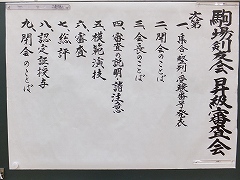 駒場剣友会昇級審査会
次第
一、集合・整列・受検番号発表
二、開会のことば
三、会長のことば
四、審査の説明・諸注意
五、模範演技
六、審査
七、総評
八、認定証授与
九、閉会のことば